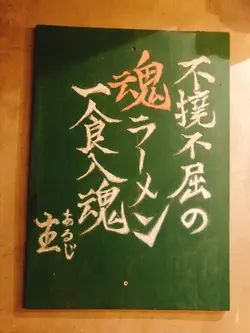 不撓不屈の
魂ラーメン
一食入魂
あるじ
主